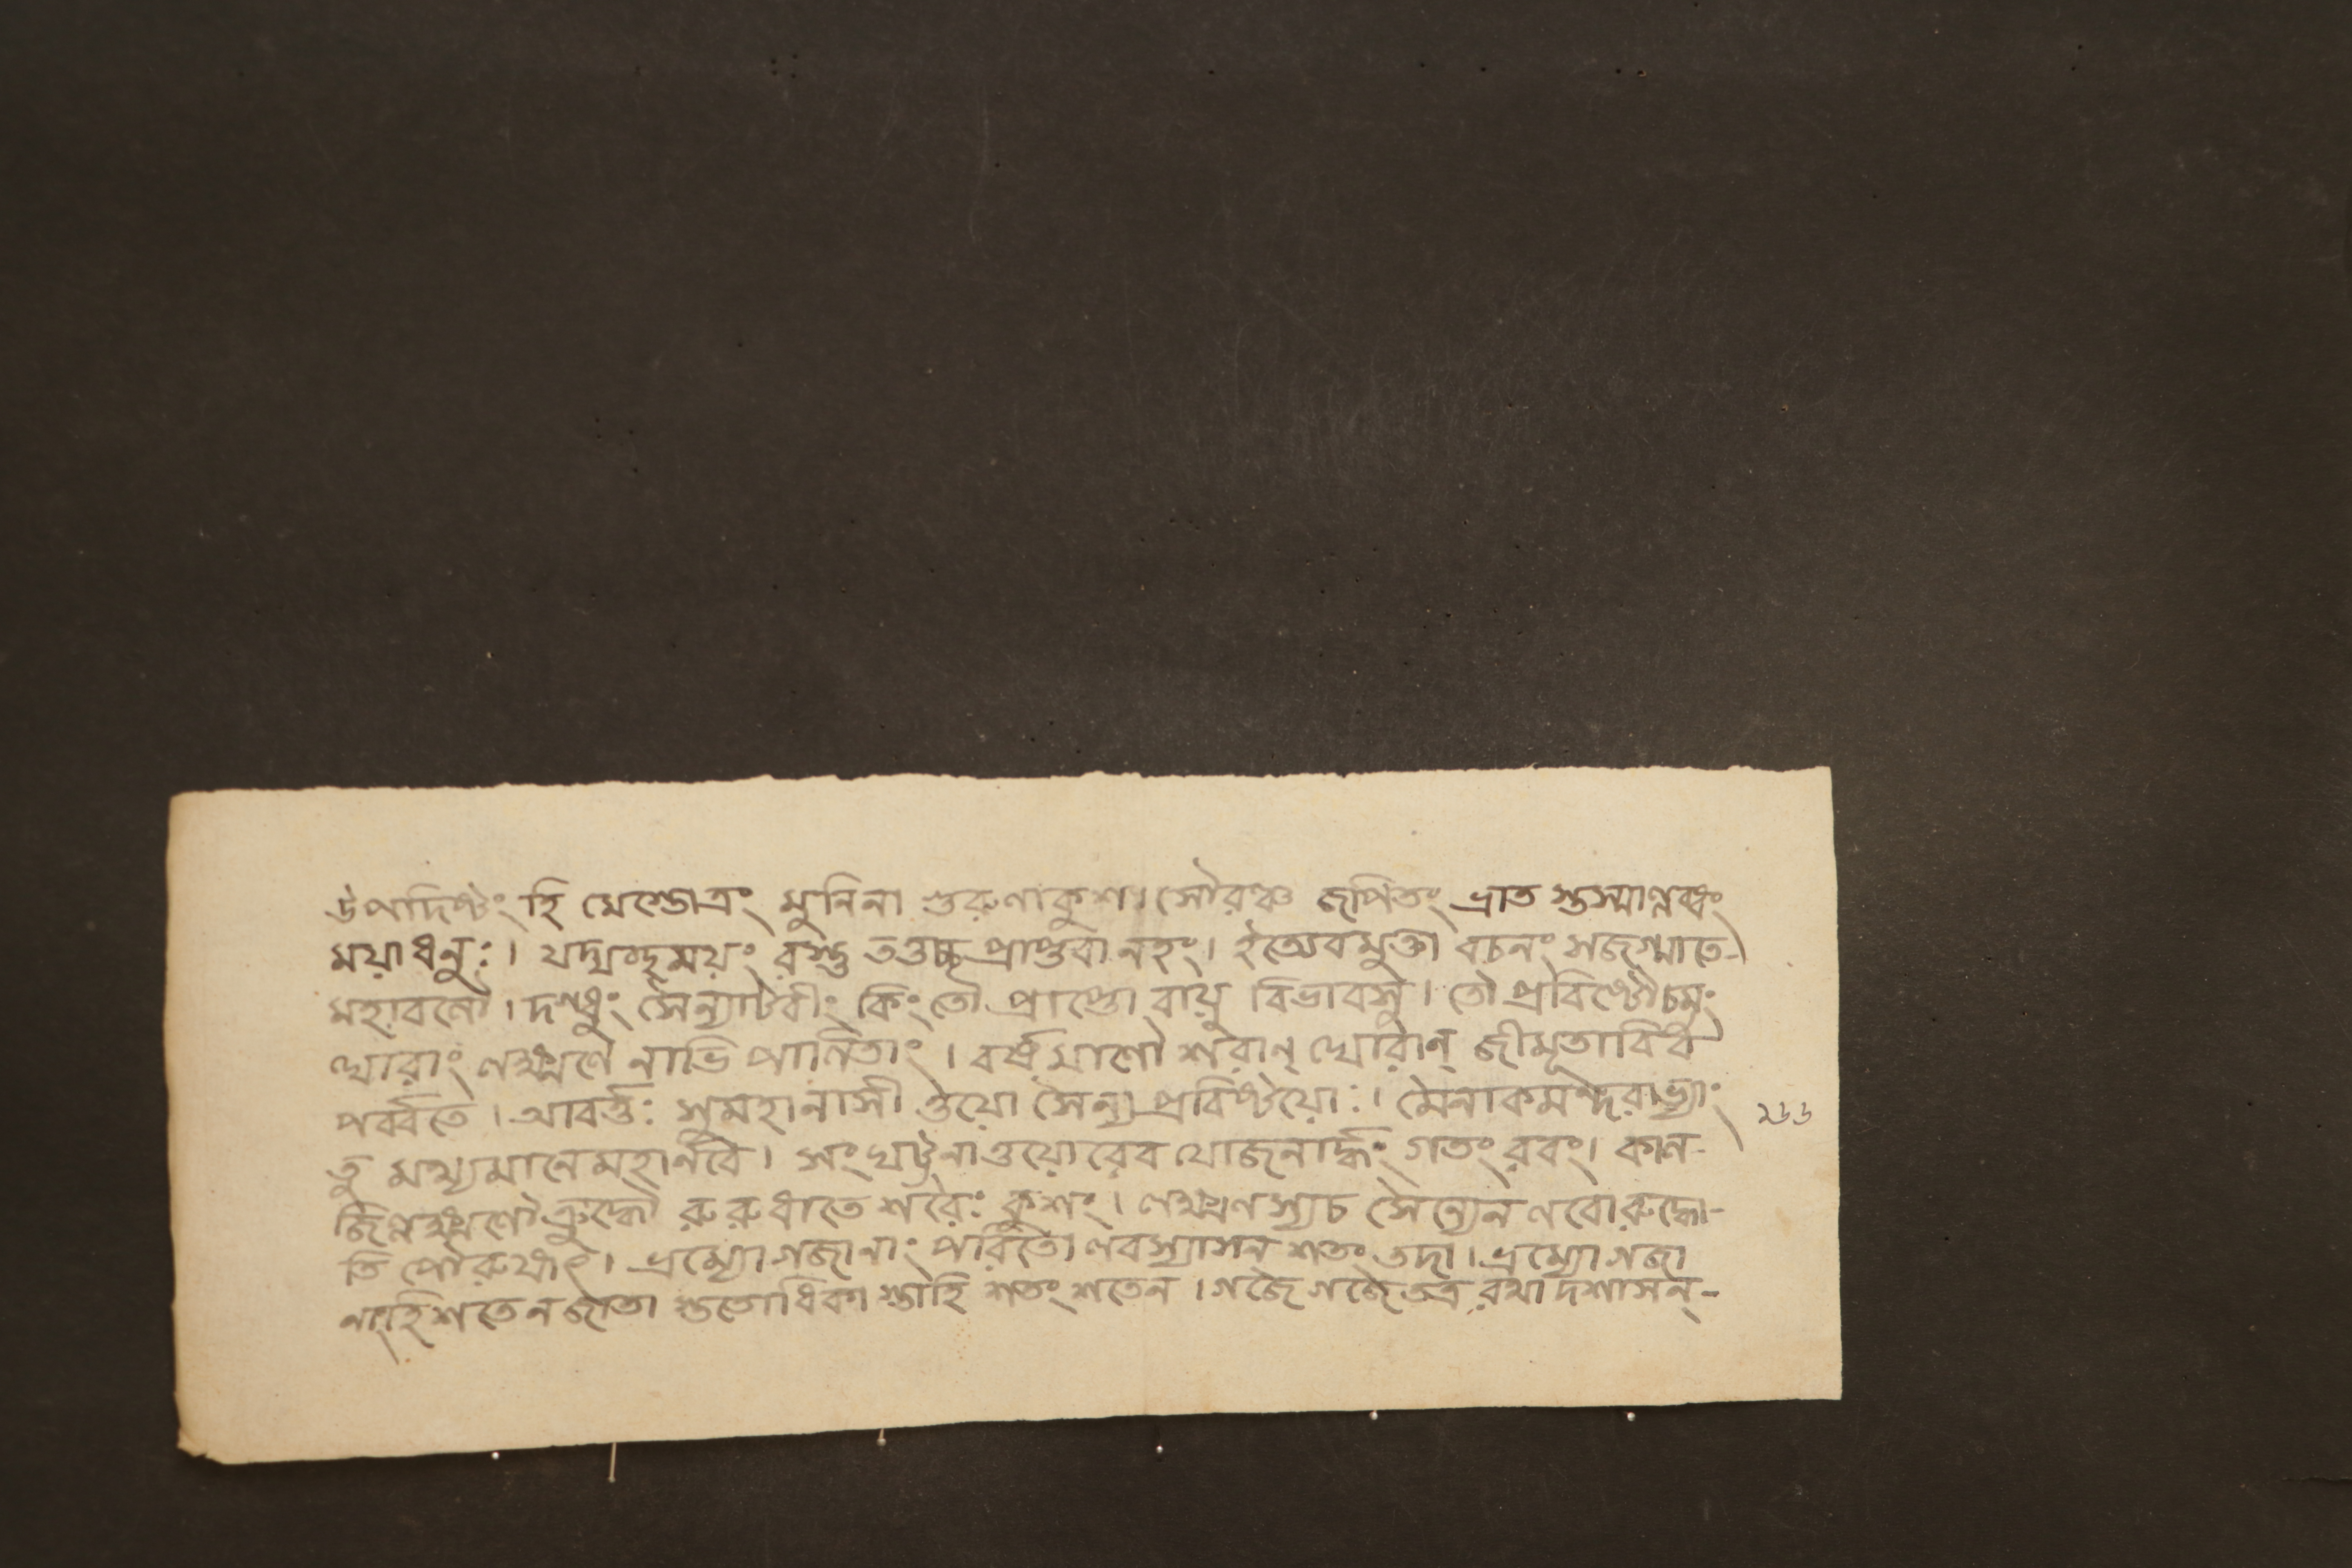 উপদিষ্টং হি মে স্তোত্রং মুনিনা গুরুণা কুশ। সৌরঞ্চ জপিতং ভ্রাত স্তস্মাল্লব্ধং
ময়া ধনুঃ। যদ্যদ্দৃময়ং বস্তু তত্তচ্চ প্রাপ্তবানহং। ইত্যেবমুক্তা বচনং সজগ্মাতে-
মহাবলৌ। দগ্ধুং সৈন্যাটবীং কিং তৌ প্রাপ্তো বায়ু বিভাবসু। তৌ প্রবিষ্টৌ চমুং
ঘোরাং লক্ষ্মণে নাভি পালিতাং। বর্ষমাণৌ শরান্ ঘোরান্ জীমূতাবিব
পর্ব্বতে। আবর্ত্তঃ সুমহানাসী ত্তয়ো সৈন্য প্রবিষ্টয়োঃ। মৈনাকমন্দরাভ্যাং
তু মথ্যমানে মহার্ণবে। সংঘট্টনাত্তয়োরেব যোজনার্দ্ধং গতং রবং। কাল-
জিল্লক্ষ্মণৌ ক্রুদ্ধৌ রুরুধাতে শরৈঃ কুশং। লক্ষ্মণস্যচ সৈন্যেন লবো রুদ্ধো-
তি পৌরুষাৎ। ভ্রম্যো গজানাং পরিতো লবস্যাসন শতং তদা। ভ্রম্যো গজা
নাংহি শতেন জাতা স্ততোধিকা স্তাহি শতং শতেন। গজৈ গজৈ তত্র রথা দশাসন্-
২৬৬